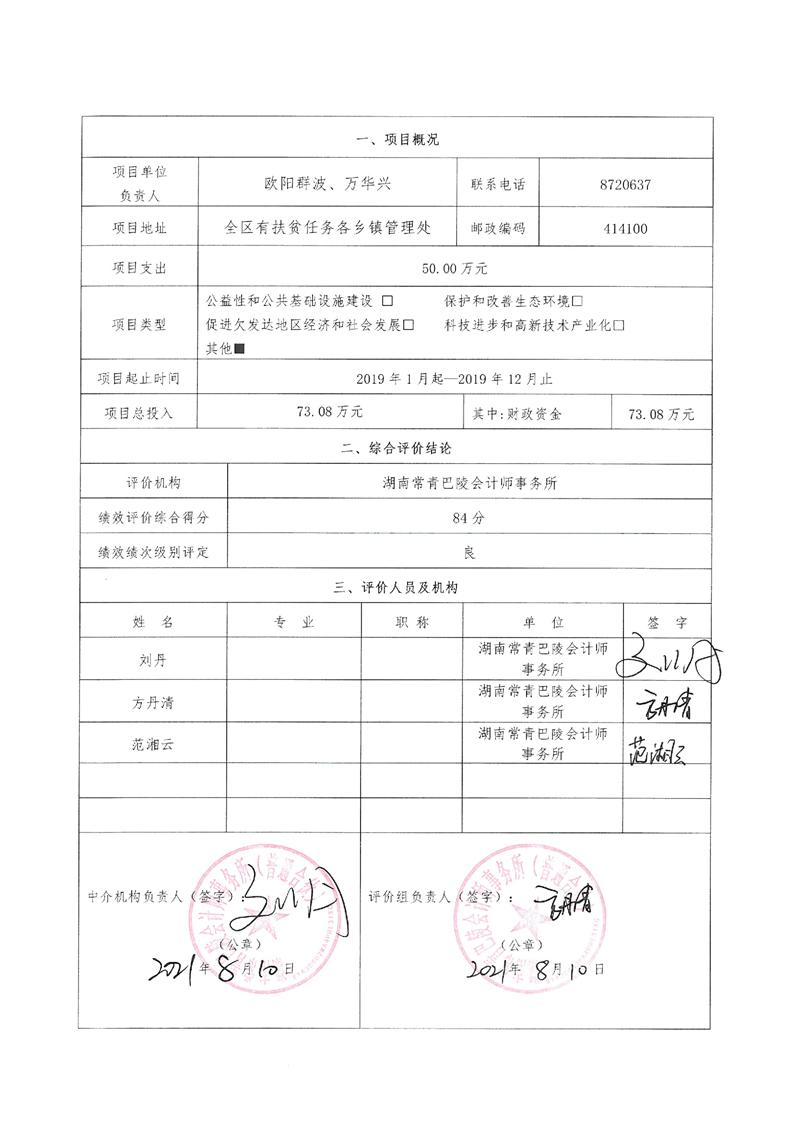 一、项目概况
项目单位
负责人
欧阳群波、万华兴
联系电话
8720637
项目地址
全区有扶贫任务各乡镇管理处
邮政编码
414100
项目支出
50.00 万元
项目类型
公益性和公共基础设施建设 □ 保护和改善生态环境□
促进欠发达地区经济和社会发展□ 科技进步和高新技术产业化□
其他■
项目起止时间
2019 年 1 月起—2019 年 12 月止
项目总投入
73.08 万元
其中:财政资金
73.08 万元
二、综合评价结论
评价机构
湖南常青巴陵会计师事务所
绩效评价综合得分
84 分
绩效绩次级别评定
良
三、评价人员及机构
姓 名 专 业 职 称 单 位 签 字
刘丹
湖南常青巴陵会计师
事务所
方丹清
湖南常青巴陵会计师
事务所
方丹清
范湘云
湖南常青巴陵会计师
事务所
范湘云
中介机构负责人（签字）：
（公章）
2021 年 8 月 10 日
评价组负责人（签字）：方丹清
（公章）
2021 年 8 月 10 日